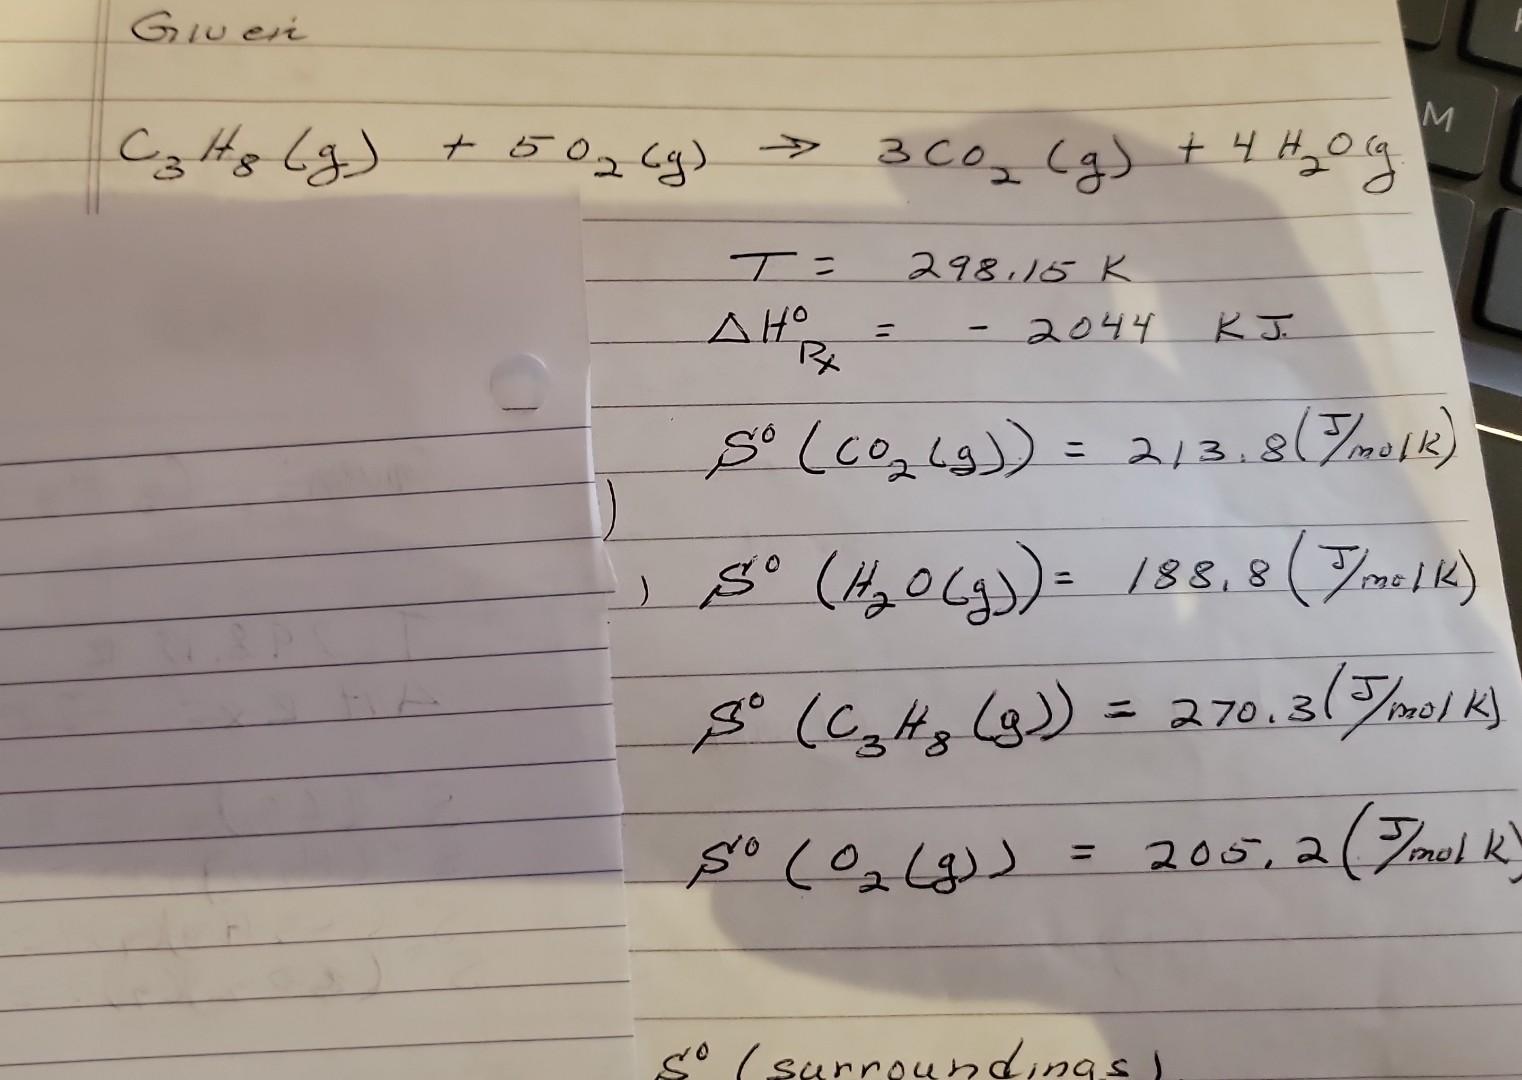 Given
C₃H₈(g) + 5O₂(g) → 3CO₂(g) + 4H₂O(g
T = 298.15 K
ΔH°Rx = - 2044 KJ.
S° (CO₂(g)) = 213.8(J/molK)
)
) S° (H₂O(g)) = 188.8(J/molK)
S° (C₃H₈(g)) = 270.3(J/molK)
S° (O₂(g)) = 205.2(J/molK)
S° (surroundings)
M